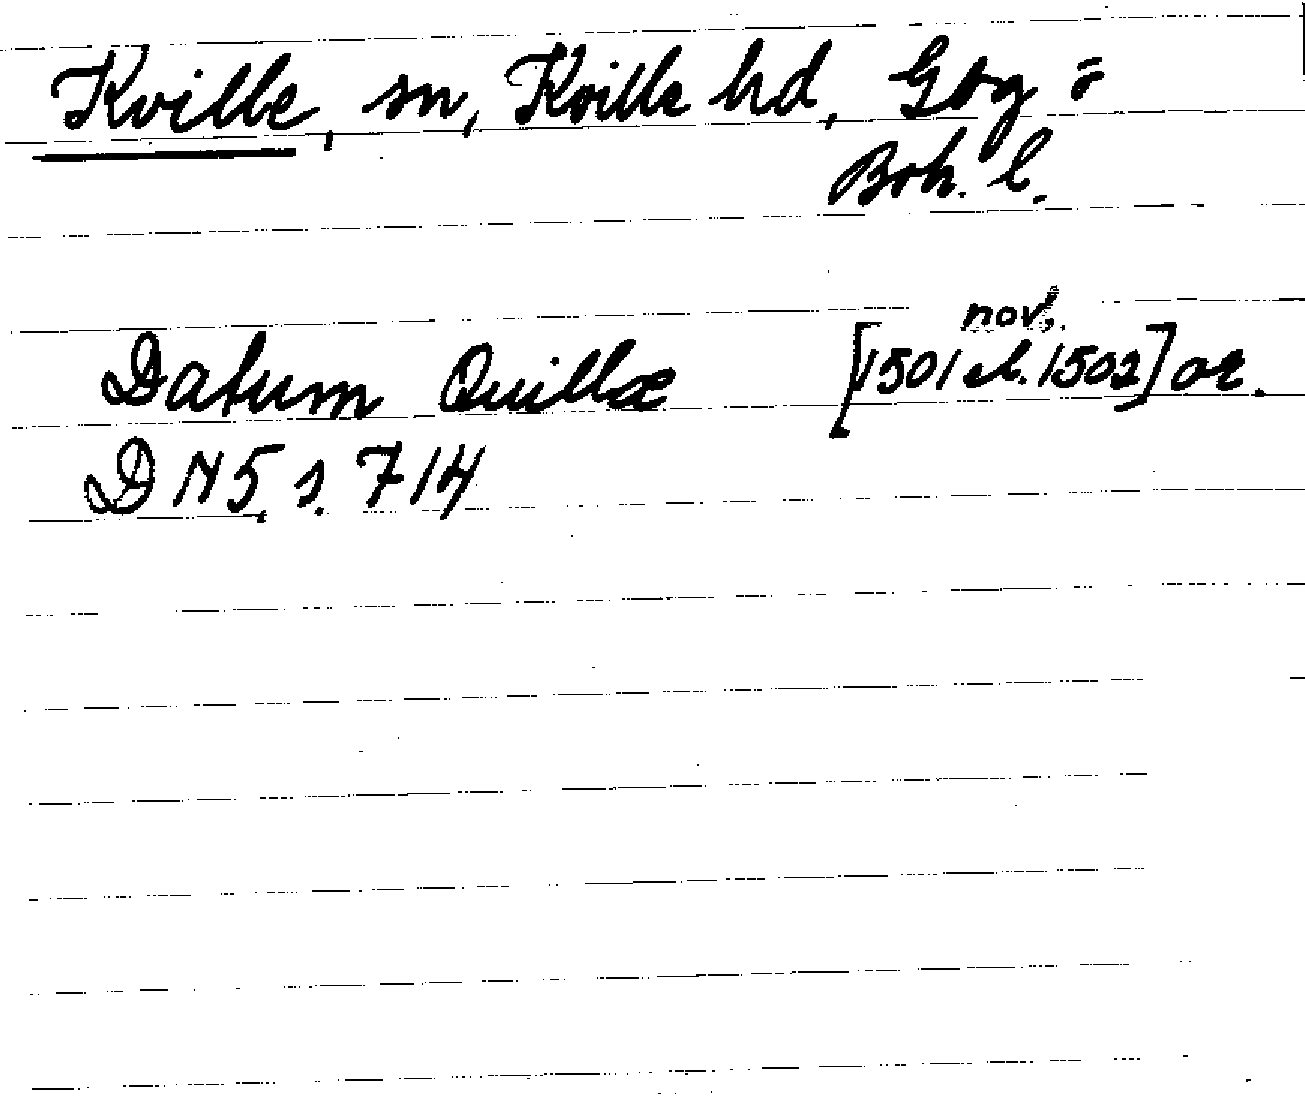 Kville, sn, Kville hd, Gbg =
Boh. l.
nov.
Datum Quillæ [1501 el. 1502] or.
DN 5, s. 714